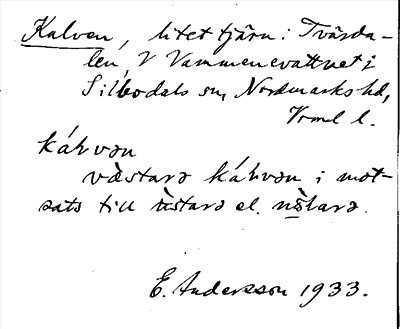 Kalven, litet tjärn i Tvärda-
len, V Vammenevattnet i
Silbodals sn, Nordmarks hd,
Vrml l.
káḷvən
västarə káḷvən i mot-
sats till ùstarə el. nòḷarə.
E. Andersson 1933.